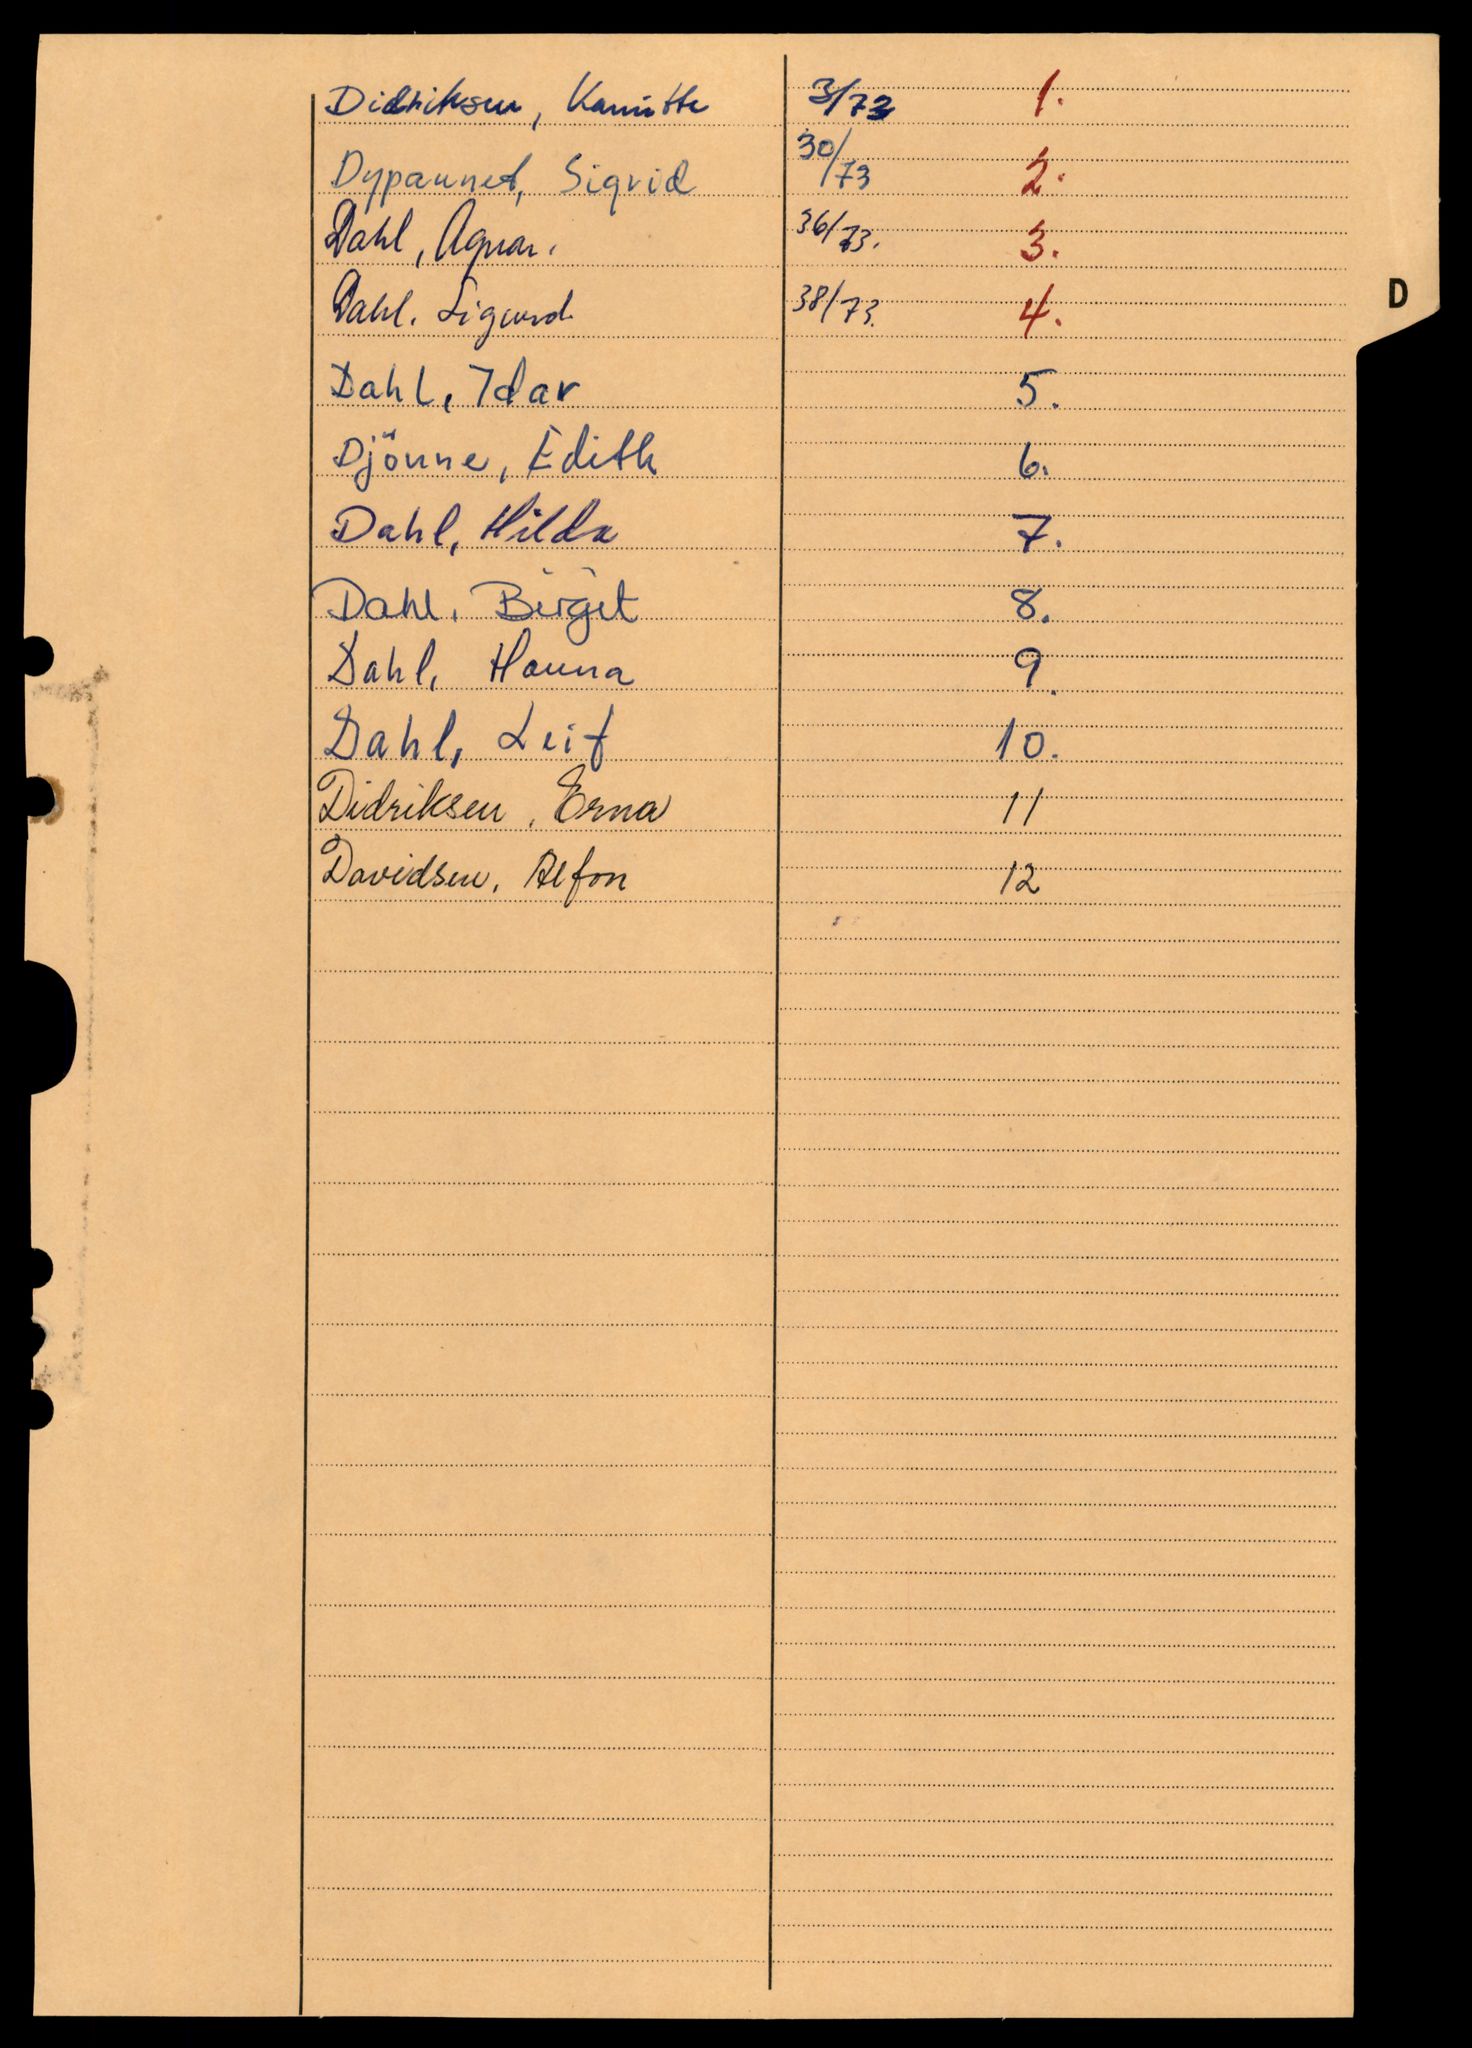 Didriksen, 3/73 1.
Dypaunet, Sigrid 30/73 2.
Dahl, Agnar. 36/73. 3.
Dahl. Sigurd. 38/73. 4.
D
Dahl, Idar 5.
Djönne, Edith 6.
Dahl, Hilda 7.
Dahl, Birgit 8.
Dahl, Hanna 9.
Dahl, Leif 10.
Didriksen, Erna 11
Davidsen, Alfon 12